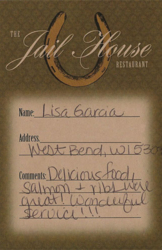 THE
Jail House
RESTAURANT
Name: Lisa Garcia
Address:
West Bend, WI 530
Comments: Delicious food,
Salmon + ribs were
great! Wonderful
Service!!!